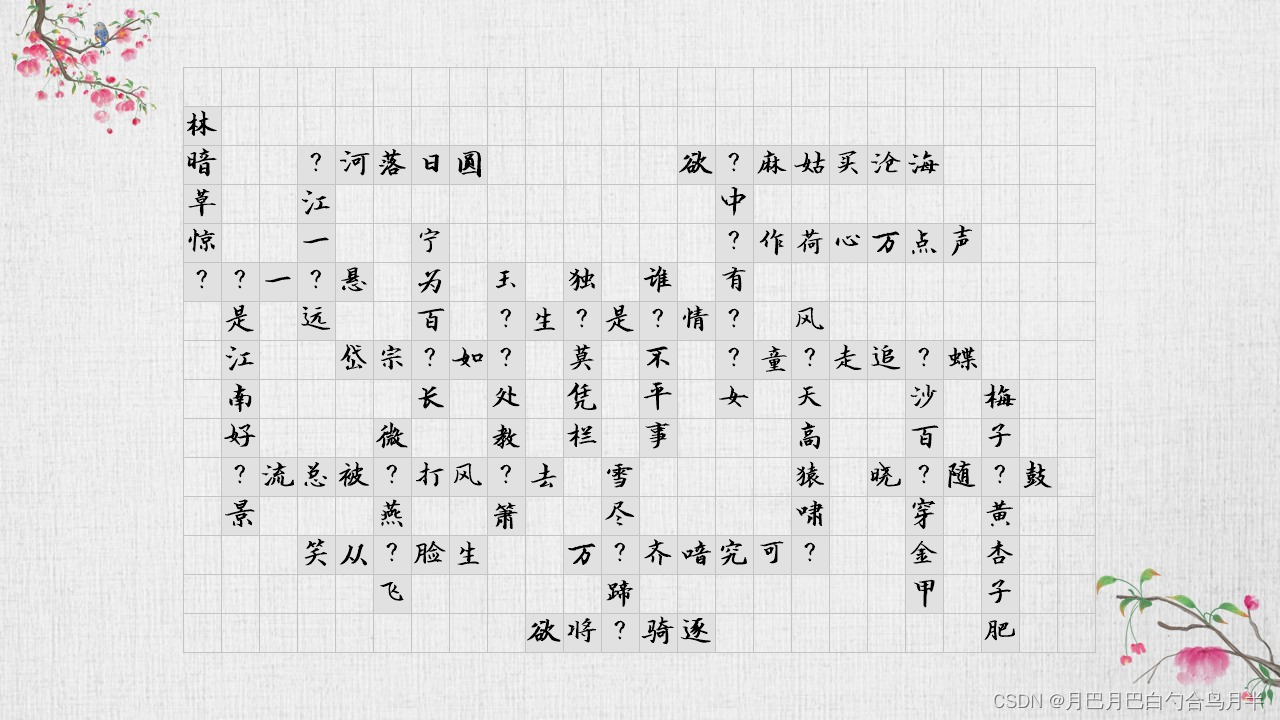 林
暗 ? 河 落 日 圆 欲 ? 麻 姑 买 沧 海
草 江 中
惊 一 宁 ? 作 荷 心 万 点 声
? ? 一 ? 悬 为 玉 独 谁 有
是 远 百 ? 生 ? 是 ? 情 ? 风
江 岱 宗 ? 如 ? 莫 不 ? 童 ? 走 追 ? 蝶
南 长 处 凭 平 女 天 沙 梅
好 微 教 栏 事 高 百 子
? 流 总 被 ? 打 风 ? 去 雪 猿 晓 ? 随 ? 鼓
景 燕 箫 尽 啸 穿 黄
笑 从 ? 脸 生 万 ? 齐 喑 究 可 ? 金 杏
飞 蹄 甲 子
欲 将 ? 骑 逐 肥
CSDN @月巴月巴白勺合鸟月半